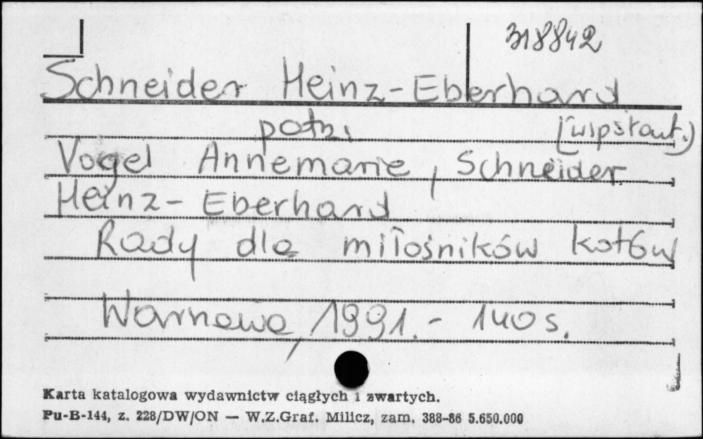 318842
Schneider Heinz-Eberhard
patrz
(współaut.)
Vogel Annemarie, Schneider
Heinz-Eberhard
Rady dla miłośników kotów
Warszawa, 1991. - 140 s.
Karta katalogowa wydawnictw ciągłych i zwartych.
Pu-B-144, z. 228/DW/ON — W.Z.Graf. Milicz, zam. 388-86 5.650.000